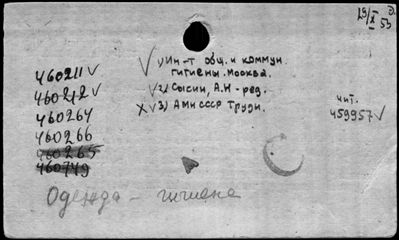 29/X 53
1) Ин-т общ. и коммун.
гигиены. Москва.
2) Сысин, А.Н - ред.
3) АМН СССР Труды.
460211
460212
460264
460266
460265
460749
чит.
459957
Одежда - гигиена